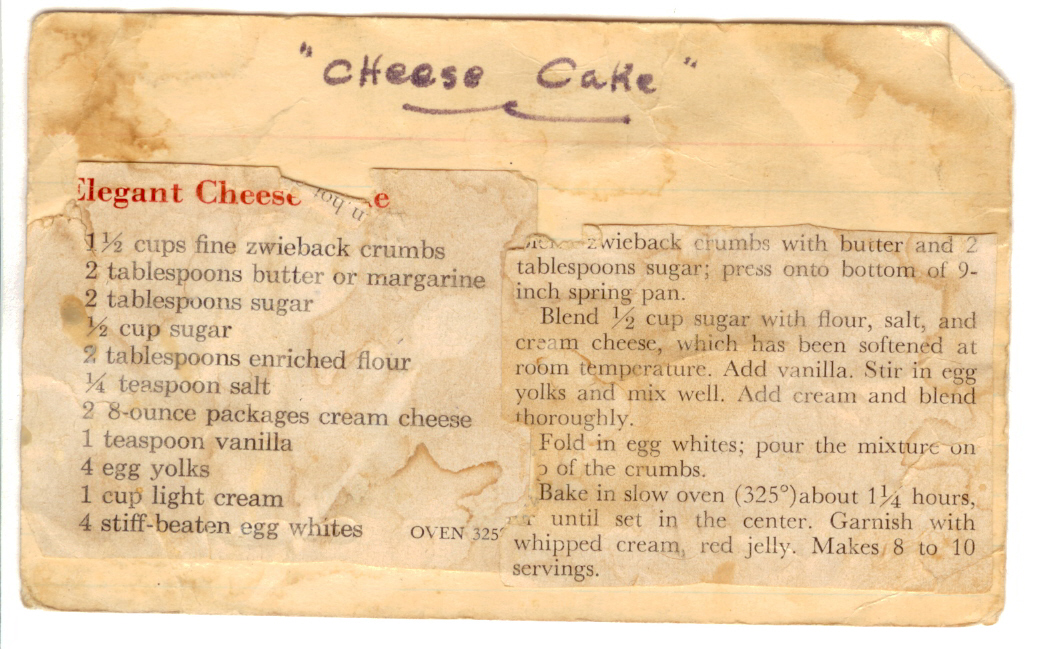 "CHeese Cake"
Elegant Cheese
1½ cups fine zwieback crumbs
2 tablespoons butter or margarine
2 tablespoons sugar
½ cup sugar
2 tablespoons enriched flour
¼ teaspoon salt
2 8-ounce packages cream cheese
1 teaspoon vanilla
4 egg yolks
1 cup light cream
4 stiff-beaten egg whites OVEN 325°
zwieback crumbs with butter and 2
tablespoons sugar; press onto bottom of 9-
inch spring pan.
Blend ½ cup sugar with flour, salt, and
cream cheese, which has been softened at
room temperature. Add vanilla. Stir in egg
yolks and mix well. Add cream and blend
thoroughly.
Fold in egg whites; pour the mixture on
of the crumbs.
Bake in slow oven (325°)about 1¼ hours,
until set in the center. Garnish with
whipped cream, red jelly. Makes 8 to 10
servings.